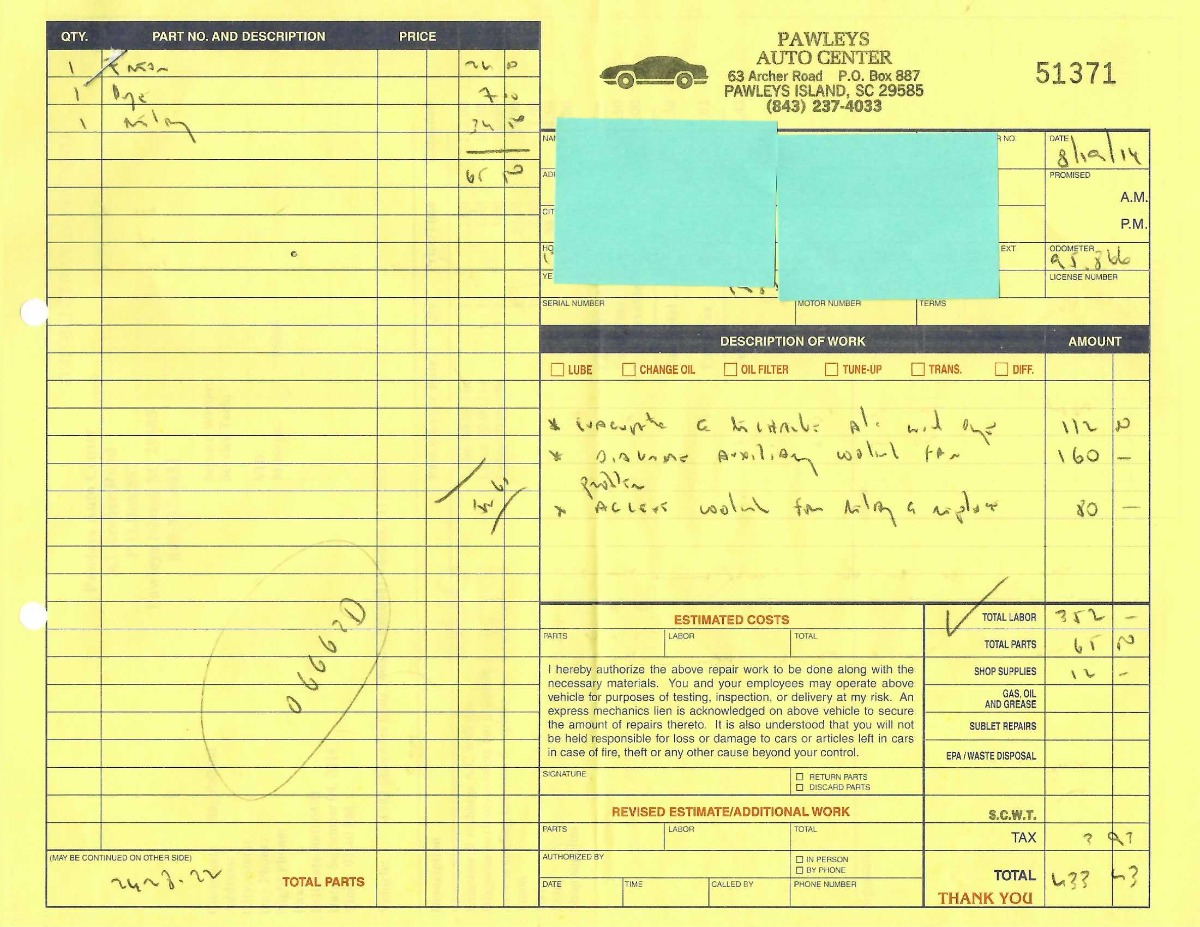 QTY. PART NO. AND DESCRIPTION PRICE
1 Freon
1 Dye 7.00
1 Relay 34 50
65 50
PAWLEYS
AUTO CENTER
63 Archer Road P.O. Box 887
PAWLEYS ISLAND, SC 29585
(843) 237-4033
51371
DATE
8/19/14
PROMISED
A.M.
P.M.
EXT
ODOMETER
95,866
LICENSE NUMBER
SERIAL NUMBER MOTOR NUMBER TERMS
DESCRIPTION OF WORK AMOUNT
LUBE CHANGE OIL OIL FILTER TUNE-UP TRANS. DIFF.
* Evacuate & recharge A/C with Dye 112
* Diagnose Auxiliary coolant fan 160 –
problem
* Access coolant fan relay & replace 80 –
ESTIMATED COSTS
PARTS LABOR TOTAL
I hereby authorize the above repair work to be done along with the
necessary materials. You and your employees may operate above
vehicle for purposes of testing, inspection, or delivery at my risk. An
express mechanics lien is acknowledged on above vehicle to secure
the amount of repairs thereto. It is also understood that you will not
be held responsible for loss or damage to cars or articles left in cars
in case of fire, theft or any other cause beyond your control.
SIGNATURE
RETURN PARTS
DISCARD PARTS
REVISED ESTIMATE/ADDITIONAL WORK
PARTS LABOR TOTAL
AUTHORIZED BY
IN PERSON
BY PHONE
DATE TIME CALLED BY PHONE NUMBER
TOTAL LABOR 352 –
TOTAL PARTS 65 50
SHOP SUPPLIES 12 –
GAS, OIL
AND GREASE
SUBLET REPAIRS
EPA / WASTE DISPOSAL
S.C.W.T.
TAX
TOTAL 433 43
THANK YOU
06662D
(MAY BE CONTINUED ON OTHER SIDE)
TOTAL PARTS